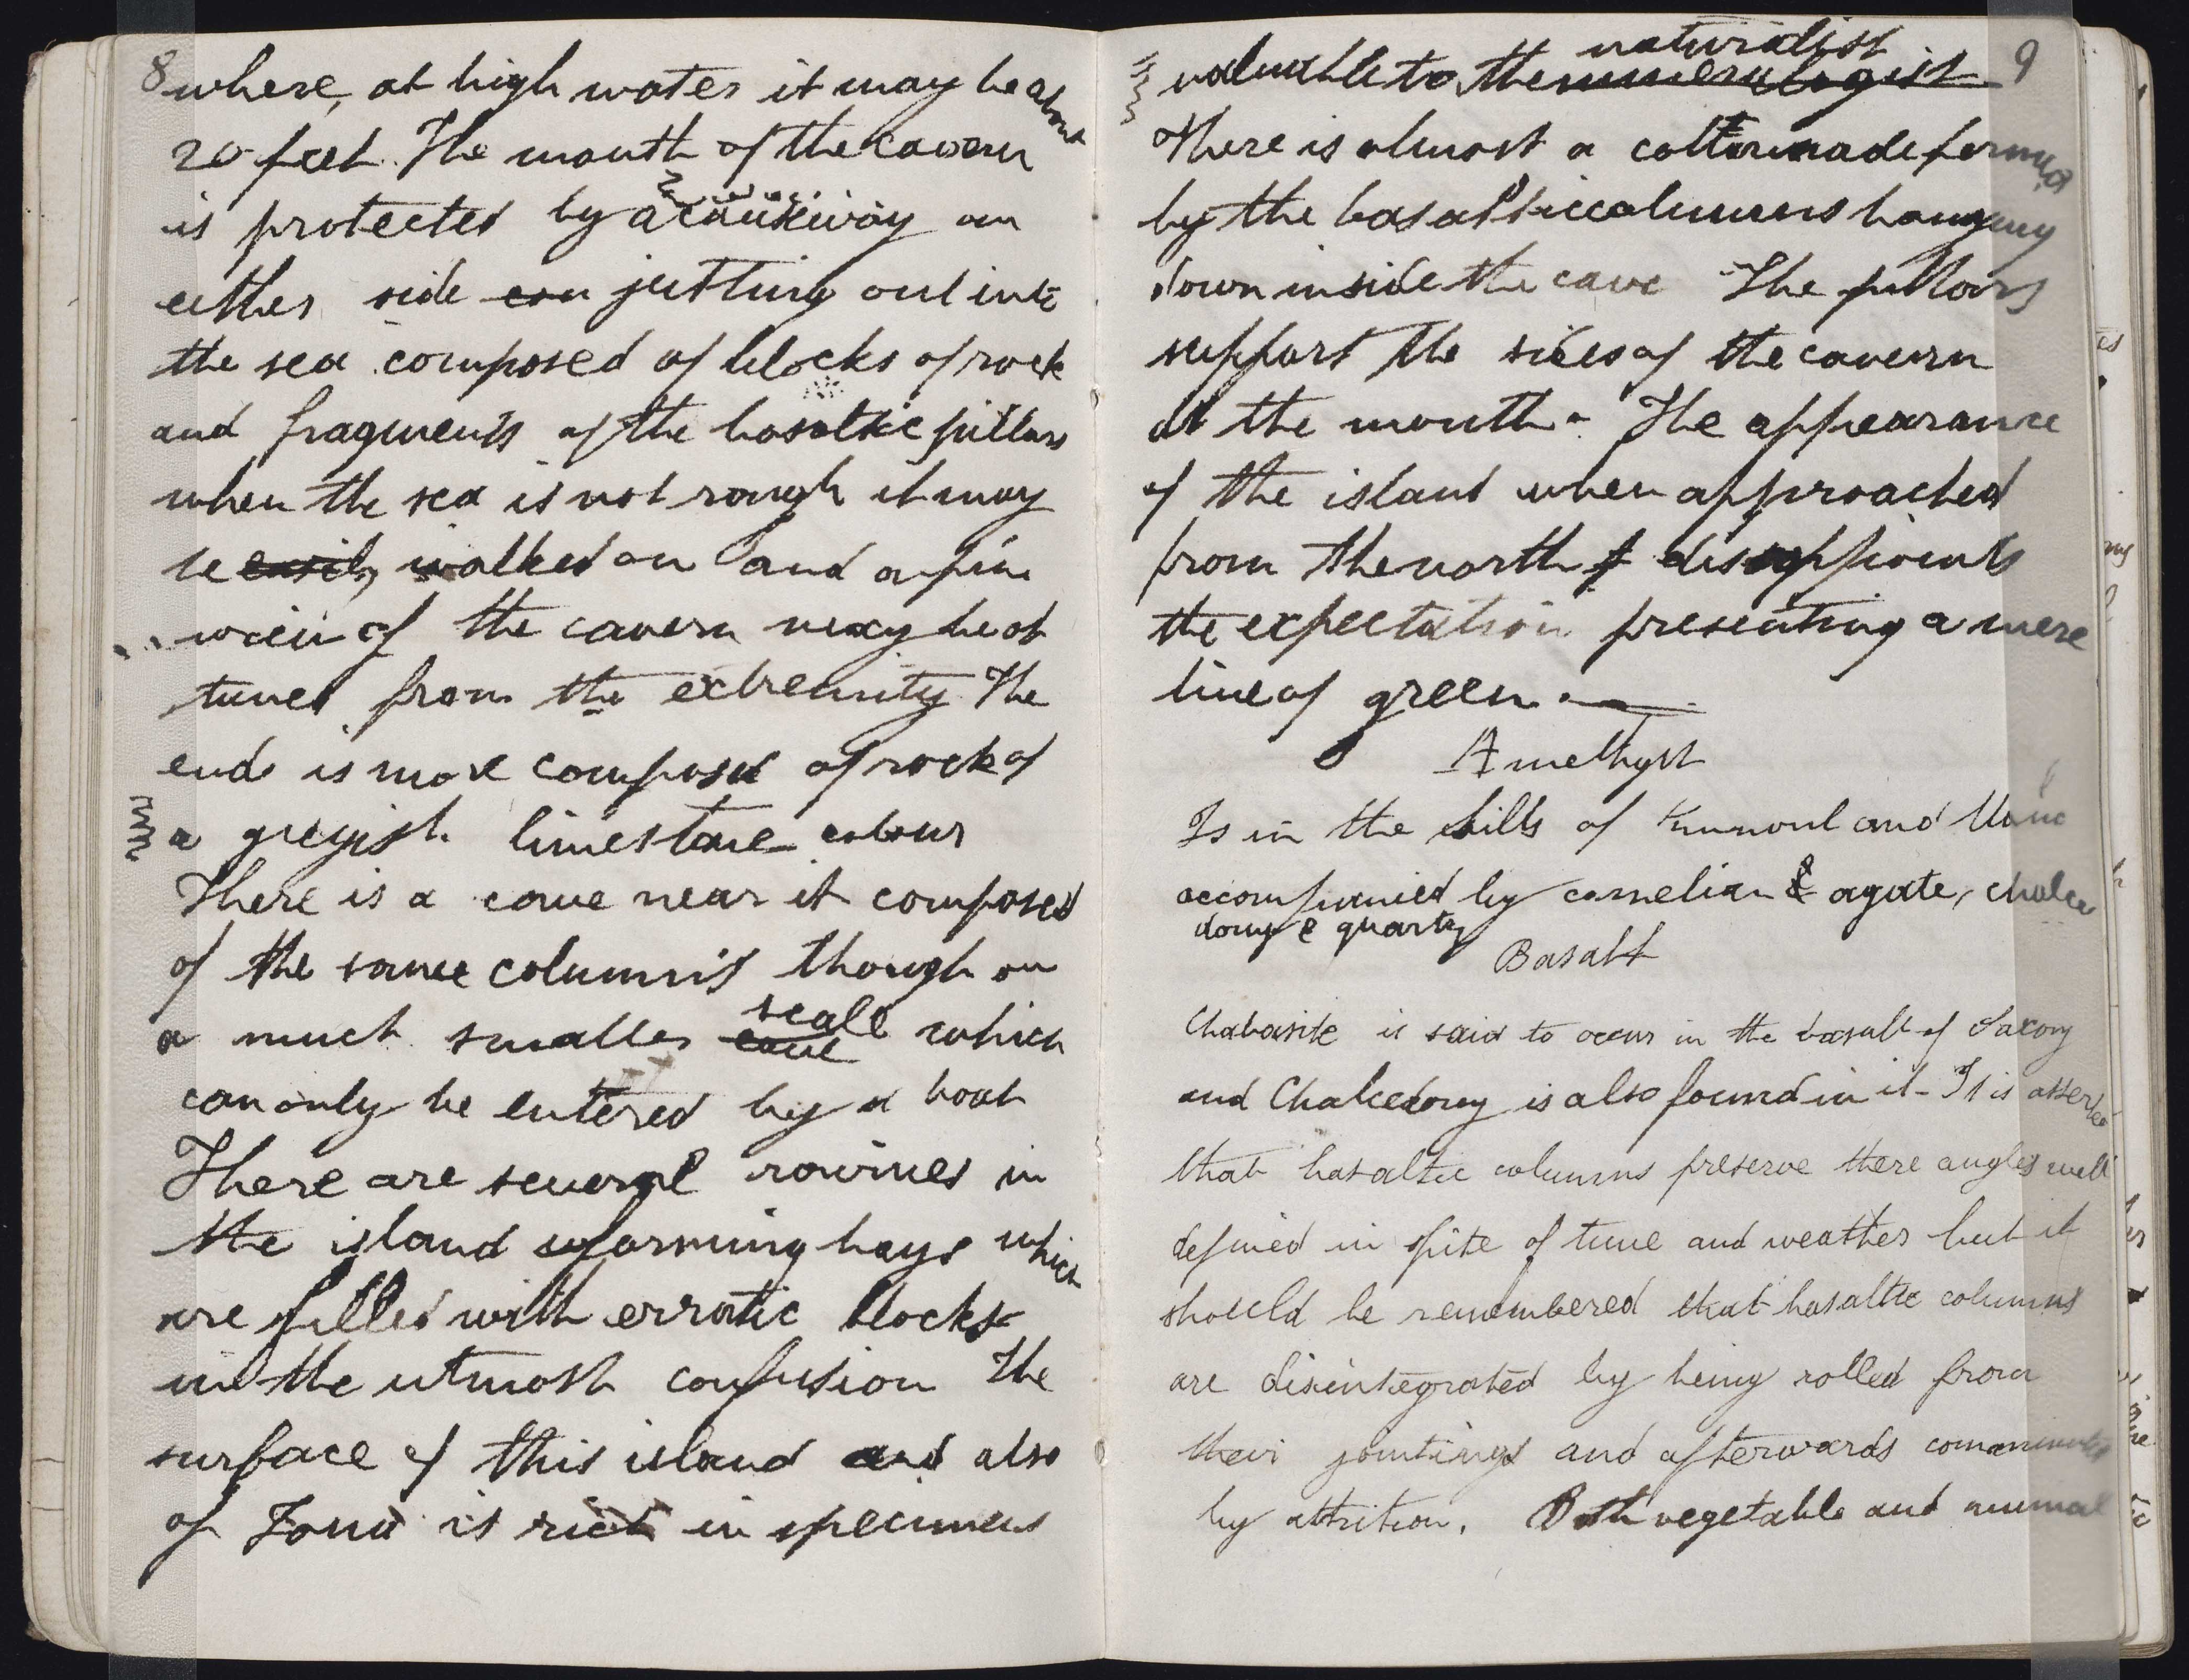 8
where, at high water it may be about
20 feet. The mouth of the cavern
is protected by a causeway on
either side jutting out into
the sea composed of blocks of rock
and fragments of the basaltic pillars
when the sea is not rough it may
be easily walked on and a fine
view of the cavern may be ob
tained from the extremity. The
end is composed of rock of
a greyish limestone colour
There is a cave near it composed
of the same columns though on
a much smaller cave scale which
can only be entered by a boat
There are several ravines in
the island forming bays which
are filled with erratic blocks
in the utmost confusion The
surface of this island and also
of Iona is rich in specimens
9
naturalist
valuable to the mineralogist
There is almost a formed
by the basaltic columns hanging
down inside the cave The pillars
support the sides of the cavern
at the mouth. The appearance
of the island when approached
from the north disappoints
the expectation presenting a mere
line of green.
Amethyst
Is in the hills of and
accompanied by carnelian & agate, chalce
dony & quartz
Basalt
Chabasite is said to occur in the basalt of Saxony
and Chalcedony is also found in it - It is asserted
that basaltic columns preserve there angles well
defined in spite of time and weather but it
should be remembered that basaltic columns
are disintegrated by being rolled from
their jointings and afterwards comminuted
by attrition. Both vegetable and animal